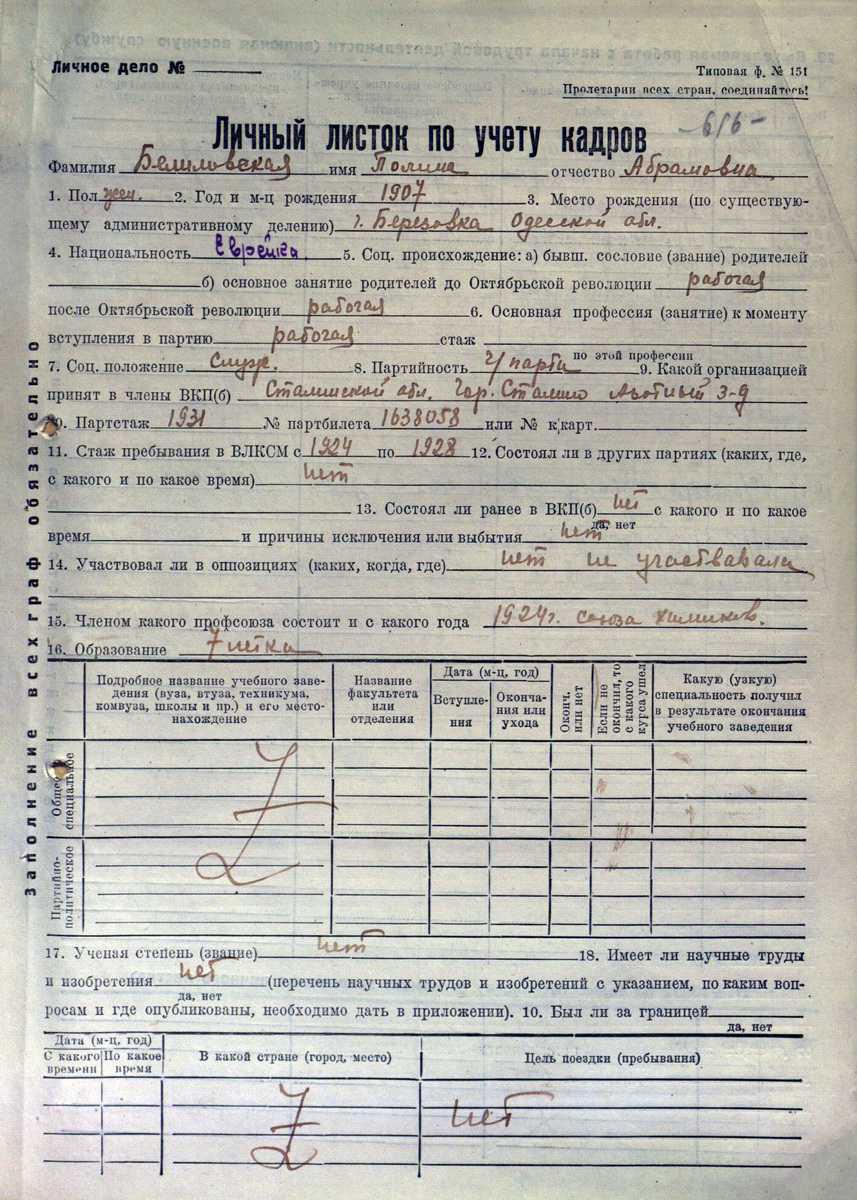 Личное дело № 
Типовая ф. № 151
Пролетарии всех стран, соединяйтесь!
Личный листок по учету кадров -616-
Фамилия Белиловская имя Полина отчество Абрамовна
1. Пол жен. 2. Год и м-ц рождения 1907 3. Место рождения (по существую-
щему административному делению) г. Березовка Одесской обл.
4. Национальность Еврейка. 5. Соц. происхождение: а) бывш. сословие (звание) родителей
б) основное занятие родителей до Октябрьской революции рабочая
после Октябрьской революции рабочая 6. Основная профессия (занятие) к моменту
вступления в партию рабочая стаж
по этой профессии
7. Соц. положение служ. 8. Партийность ч/парти 9. Какой организацией
принят в члены ВКП(б) Сталинской обл. Гор. Сталино Азотный з-д
10. Партстаж 1931 № партбилета 1638058 или № к/карт.
11. Стаж пребывания в ВЛКСМ с 1924 по 1928 12. Состоял ли в других партиях (каких, где,
с какого и по какое время) нет
13. Состоял ли ранее в ВКП(б) нет с какого и по какое
да, нет
время и причины исключения или выбытия нет
14. Участвовал ли в оппозициях (каких, когда, где). нет не участвавала
15. Членом какого профсоюза состоит и с какого года 1924 г. союза химиков.
16. Образование 7 летка
Подробное название учебного заве-
дения (вуза, втуза, техникума,
комвуза, школы и пр.) и его место-
нахождение
Название
факультета
или
отделения
Дата (м-ц, год)
Вступле-
ния
Оконча-
ния или
ухода
Оконч.
или нет
Если не
окончил, то
с какого
курса ушел
Какую (узкую)
специальность получил
в результате окончания
учебного заведения
Общее и
специальное
Партийно-
политическое
Z
17. Ученая степень (звание) нет 18. Имеет ли научные труды
и изобретения нет (перечень научных трудов и изобретений с указанием, по каким воп-
да, нет
росам и где опубликованы, необходимо дать в приложении). 10. Был ли за границей
да, нет
Дата (м-ц, год)
С какого
времени
По какое
время
В какой стране (город, место)
Цель поездки (пребывания)
Z нет
Заполнение всех граф обязательно